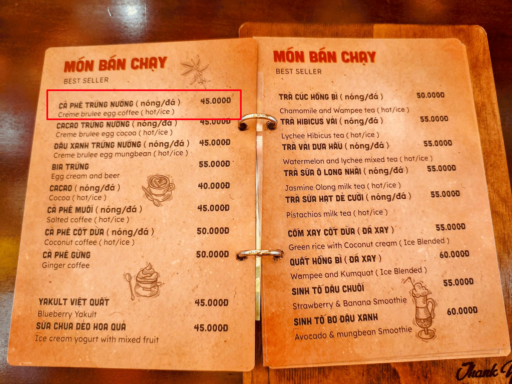 MÓN BÁN CHẠY
BEST SELLER
CÀ PHÊ TRỨNG NƯỚNG ( nóng/đá ) 45.000Đ
Creme brulee egg coffee ( hot/ice )
CACAO TRỨNG NƯỚNG ( nóng/đá ) 45.000Đ
Creme brulee egg cocoa ( hot/ice )
ĐẬU XANH TRỨNG NƯỚNG ( nóng/đá ) 45.000Đ
Creme brulee egg mungbean ( hot/ice )
BIA TRỨNG 55.000Đ
Egg cream and beer
CACAO ( nóng/đá ) 40.000Đ
Cocoa ( hot/ice )
CÀ PHÊ MUỐI ( nóng/đá ) 45.000Đ
Salted coffee ( hot/ice )
CÀ PHÊ CỐT DỪA ( nóng/đá ) 50.000Đ
Coconut coffee ( hot/ice )
CÀ PHÊ GỪNG 50.000Đ
Ginger coffee
YAKULT VIỆT QUẤT 45.000Đ
Blueberry Yakult
SỮA CHUA DẺO HOA QUẢ 45.000Đ
Ice cream yogurt with mixed fruit
MÓN BÁN CHẠY
BEST SELLER
TRÀ CÚC HỒNG BÌ ( nóng/đá ) 50.000Đ
Chamomile and Wampee tea ( hot/ice )
TRÀ HIBICUS VẢI ( nóng/đá ) 55.000Đ
Lychee Hibicus tea ( hot/ice )
TRÀ VẢI DƯA HẤU ( nóng/đá ) 55.000Đ
Watermelon and lychee mixed tea ( hot/ice )
TRÀ SỮA Ô LONG NHÀI ( nóng/đá ) 55.000Đ
Jasmine Olong milk tea ( hot/ice )
TRÀ SỮA HẠT DẺ CƯỜI ( nóng/đá ) 55.000Đ
Pistachios milk tea ( hot/ice )
CỐM XAY CỐT DỪA ( ĐÁ XAY ) 55.000Đ
Green rice with Coconut cream ( Ice Blended )
QUẤT HỒNG BÌ ( ĐÁ XAY ) 60.000Đ
Wampee and Kumquat ( Ice Blended )
SINH TỐ DÂU CHUỐI 55.000Đ
Strawberry & Banana Smoothie
SINH TỐ BƠ ĐẬU XANH 60.000Đ
Avocado & mungbean Smoothie
Thank